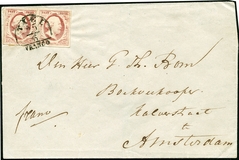 FRANCO
Den Heer G. Th. Bom
Boekverkooper
Kalverstraat
te
franco
Amsterdam